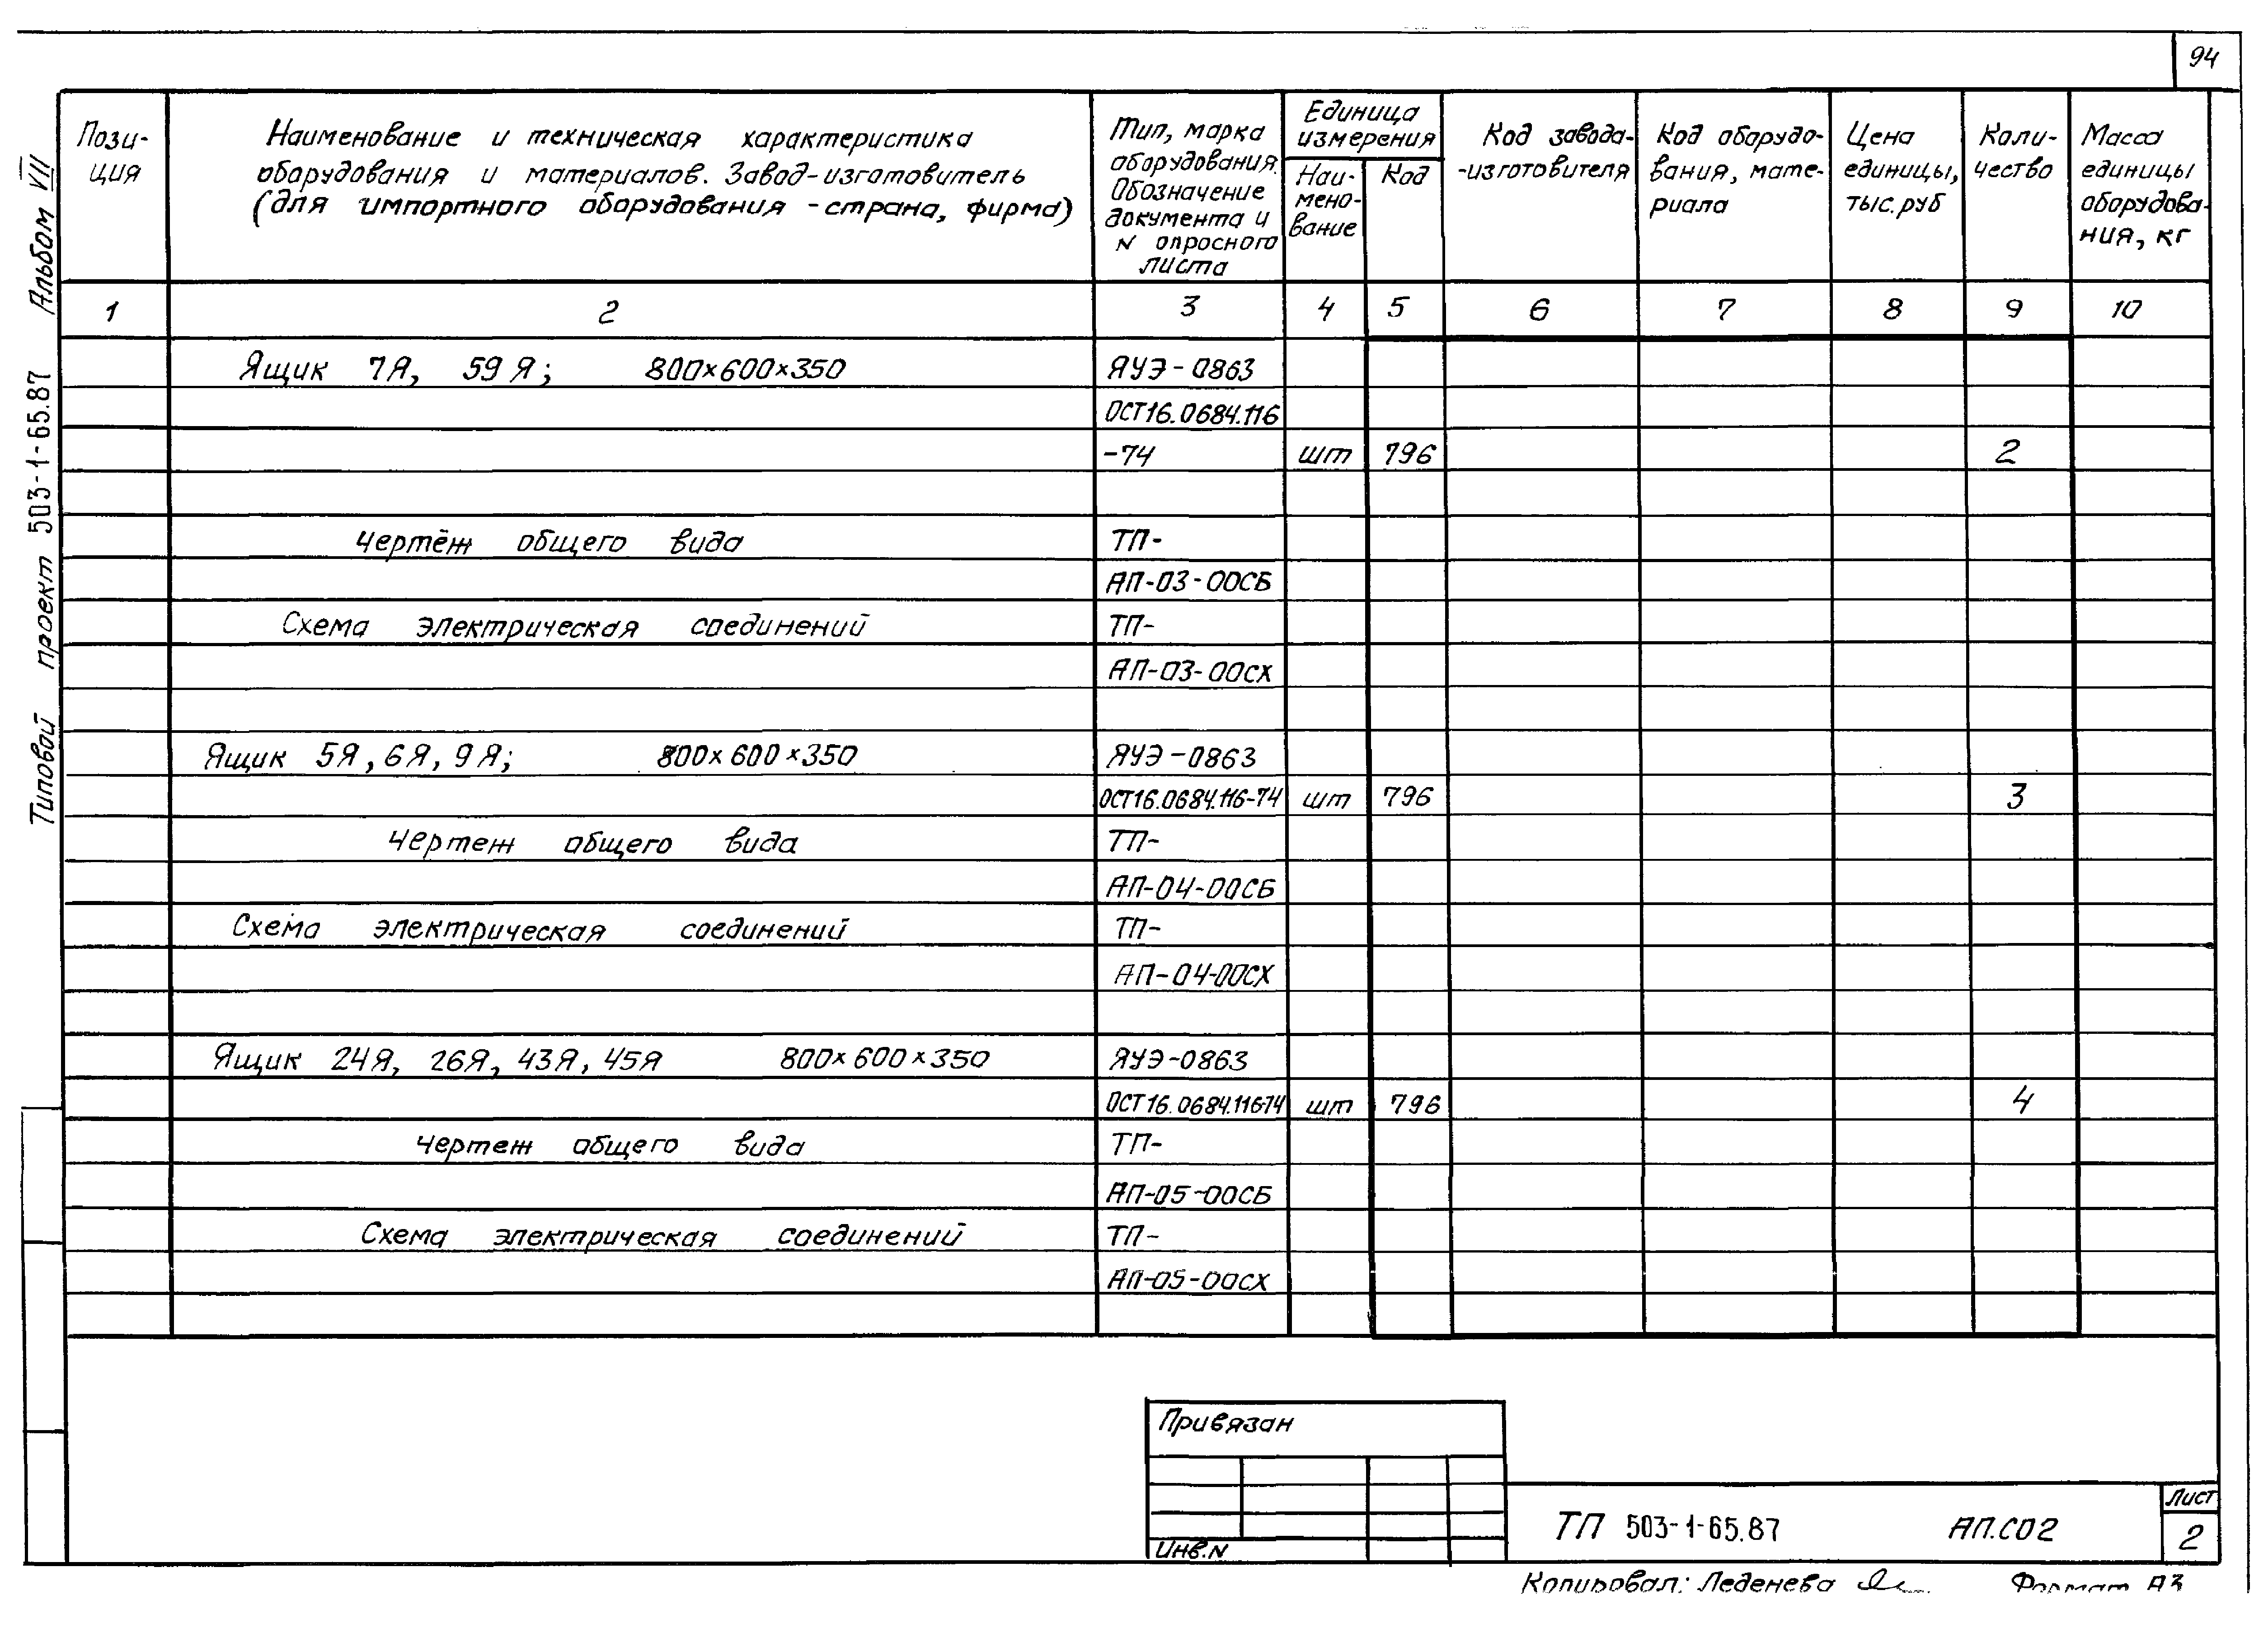 94
Типовой проект 503-1-65.87 Альбом VII
Пози-
ция
Наименование и техническая характеристика
оборудования и материалов. Завод-изготовитель
(для импортного оборудования - страна, фирма)
Тип, марка
оборудования.
Обозначение
документа и
N опросного
листа
Единица
измерения
Наи-
мено-
вание
Код
Код завода-
-изготовителя
Код оборудо-
вания, мате-
риала
Цена
единицы,
тыс.руб
Коли-
чество
Масса
единицы
оборудова-
ния, кг
1 2 3 4 5 6 7 8 9 10
Ящик 7Я, 59Я; 800×600×350 ЯУЭ-0863
ОСТ16.0684.116
-74 шт 796 2
Чертёж общего вида ТП-
АП-03-00СБ
Схема электрическая соединений ТП-
АП-03-00СХ
Ящик 5Я, 6Я, 9Я; 800×600×350 ЯУЭ-0863
ОСТ16.0684.116-74 шт 796 3
Чертеж общего вида ТП-
АП-04-00СБ
Схема электрическая соединений ТП-
АП-04-00СХ
Ящик 24Я, 26Я, 43Я, 45Я 800×600×350 ЯУЭ-0863
ОСТ16.0684.116-74 шт 796 4
Чертеж общего вида ТП-
АП-05-00СБ
Схема электрическая соединений ТП-
АП-05-00СХ
Привязан
Инв.N
ТП 503-1-65.87 АП.СО2
Лист
2
Копировал: Леденева Формат А3